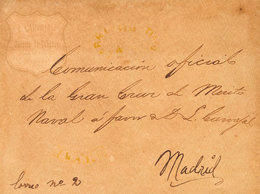 Comunicación oficial
de la Gran Cruz del Merito
Naval a favor de D. L. Carvajal
Madrid
Correo nº 2